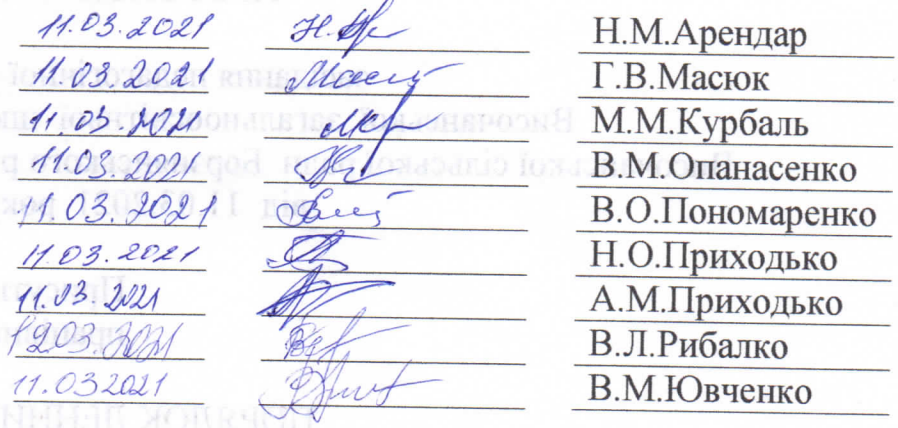 11.03.2021 Н.М.Арендар
11.03.2021 Г.В.Масюк
11.03.2021 М.М.Курбаль
11.03.2021 В.М.Опанасенко
11.03.2021 В.О.Пономаренко
11.03.2021 Н.О.Приходько
11.03.2021 А.М.Приходько
1203.2021 В.Л.Рибалко
11.032021 В.М.Ювченко